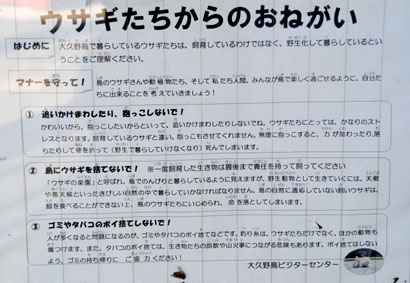 ウサギたちからのおねがい
はじめに 大久野島で暮らしているウサギたちは、飼育しているわけではなく、野生化して暮らしているという
ことをご理解ください。
マナーを守って! 島のウサギさんや動植物たち、そして私たち人間、みんなが島で楽しく過ごせるように、自分た
ちに出来ることを考えていきましょう!
① 追いかけまわしたり、抱っこしないで!
かわいいから、抱っこしたいからといって、追いかけまわしたりしないでね。ウサギたちにとっては、かなりのスト
レスとなります。飼育しているウサギと違い、抱っこもさせてくれません。無理に抱っこすると、力が加わったり、落
ちたりして骨を折って(野生で暮らしていけなくなり)死んでしまいます。
② 島にウサギを捨てないで! ※一度飼育した生き物は最後まで責任を持って飼ってください
「ウサギの楽園」と呼ばれ、島でのんびりと暮らしているように見えますが、野生動物として生きていくには、天敵
や悪天候といったきびしい自然の中で暮らしていかなければなりません。島の自然に適応していない飼いウサギは、
餌を食べることができない上、島のウサギたちにいじめられ、命を落としてしまいます。
③ ゴミやタバコのポイ捨てしないで!
人が多くなると問題になるのが、ゴミやタバコのポイ捨てなどです。釣り糸は、ウサギたちだけでなく、ほかの動物も
傷つけます。また、タバコのポイ捨ては、生き物たちの誤飲や山火事につながる危険もあります。ポイ捨てはしない
よう、ゴミの持ち帰りにご協力ください!
大久野島ビジターセンター